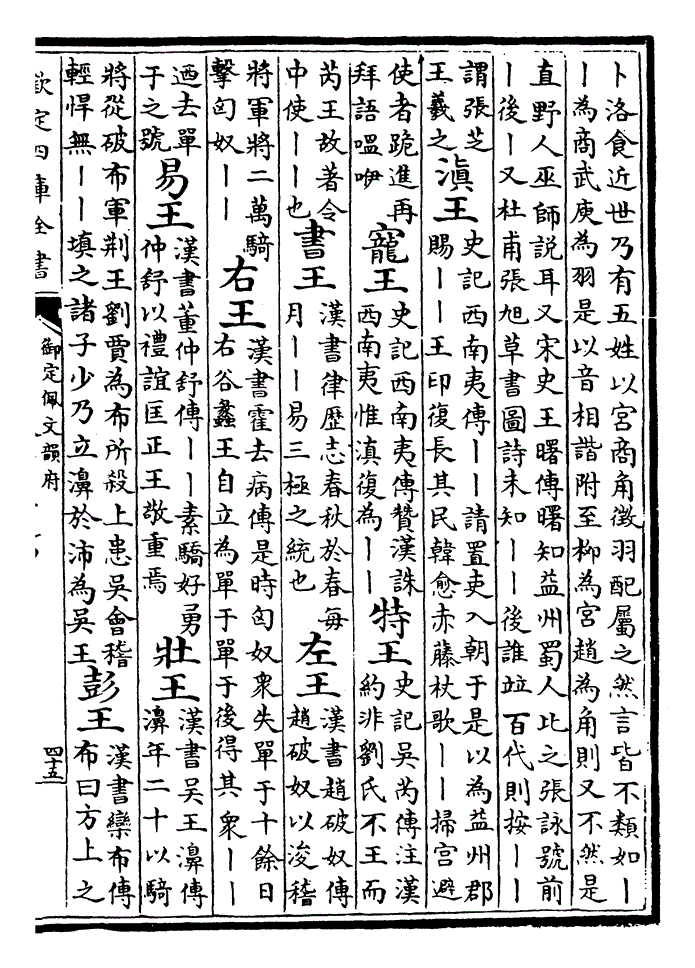 卜洛食近世乃有五姓以宮商角徵羽配屬之然言皆不類如丨
丨為商武庚為羽是以音相諧附至柳為宮趙為角則又不然是
直野人巫師說耳又宋史王曙傳曙知益州蜀人比之張詠號前
丨後丨又杜甫張旭草書圖詩未知丨丨後誰竝百代則按丨丨
謂張芝
王羲之
滇王
史記西南夷傳丨丨請置吏入朝于是以為益州郡
賜丨丨王印復長其民韓愈赤藤杖歌丨丨掃宮避
使者跪進再
拜語嗢咿
寵王
史記西南夷傳贊漢誅
西南夷惟滇復為丨丨
特王
史記吳芮傳注漢
約非劉氏不王而
芮王故著令
中使丨丨也
書王
漢書律歷志春秋於春每
月丨丨易三極之統也
左王
漢書趙破奴傳
趙破奴以浚稽
將軍將二萬騎
擊匈奴丨丨
右王
漢書霍去病傳是時匈奴衆失單于十餘日
右谷蠡王自立為單于單于後得其衆丨丨
迺去單
于之號
易王
漢書董仲舒傳丨丨素驕好勇
仲舒以禮誼匡正王敬重焉
壯王
漢書吳王濞傳
濞年二十以騎
將從破布軍荆王劉賈為布所殺上患吳會稽
輕悍無丨丨填之諸子少乃立濞於沛為吳王
彭王
漢書欒布傳
布曰方上之
欽定四庫全書
御定佩文韻府
四十五